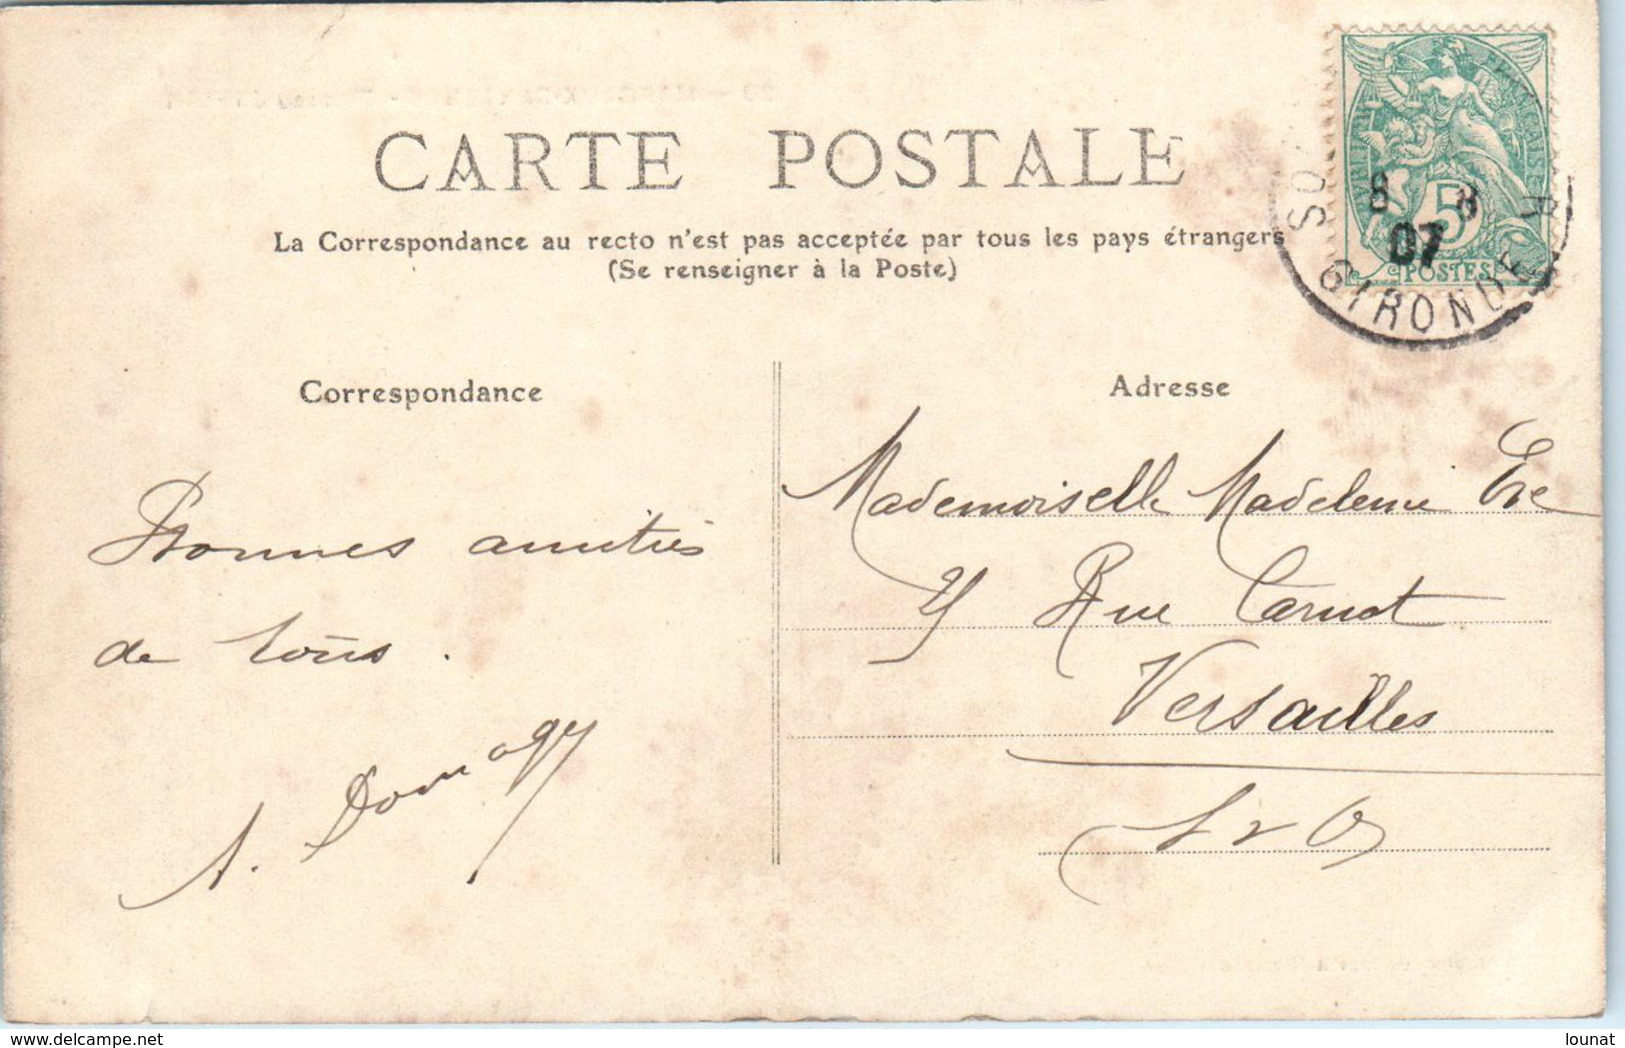 CARTE POSTALE
La Correspondance au recto n'est pas acceptée par tous les pays étrangers
(Se renseigner à la Poste)
RÉPUBLIQUE FRANÇAISE
5
POSTES
8 8
07
GIRONDE
Correspondance
Bonnes amitiés
de tous.
A.
Adresse
Mademoiselle Madeleine
Rue Carnot
Versailles
S & O
delcampe.net
lounat